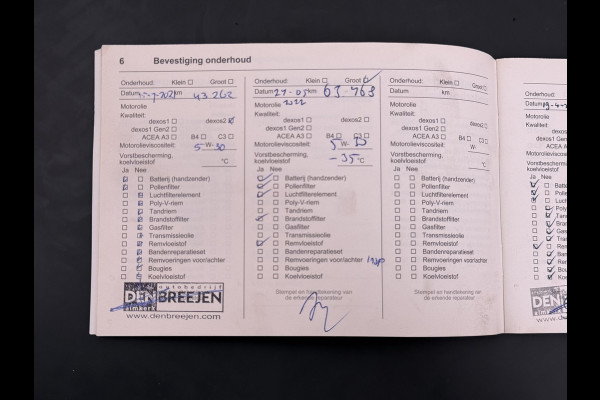 6 Bevestiging onderhoud
Onderhoud: Klein Groot
Datum km 43.262
Motorolie
Kwaliteit:
dexos1 dexos2
dexos1 Gen2
ACEA A3 B4 C3
Motorolieviscositeit: 5-W-30
Vorstbescherming,
koelvloeistof °C
Ja Nee
Batterij (handzender)
Pollenfilter
Luchtfilterelement
Poly-V-riem
Tandriem
Brandstoffilter
Gasfilter
Transmissieolie
Remvloeistof
Bandenreparatieset
Remvoeringen voor/achter
Bougies
Koelvloeistof
autobedrijf
DEN BREEJEN
almkerk
www.denbreejen.com
Onderhoud: Klein Groot
Datum 27-05 km 63.768
Motorolie 2022
Kwaliteit:
dexos1 dexos2
dexos1 Gen2
ACEA A3 B4 C3
Motorolieviscositeit: 5 W-
Vorstbescherming,
koelvloeistof -35 °C
Ja Nee
Batterij (handzender)
Pollenfilter
Luchtfilterelement
Poly-V-riem
Tandriem
Brandstoffilter
Gasfilter
Transmissieolie
Remvloeistof
Bandenreparatieset
Remvoeringen voor/achter
Bougies
Koelvloeistof
Stempel en handtekening van
de erkende reparateur
Onderhoud: Klein Groot
Datum km
Motorolie
Kwaliteit:
dexos1 dexos2
dexos1 Gen2
ACEA A3 B4 C3
Motorolieviscositeit: W-
Vorstbescherming,
koelvloeistof °C
Ja Nee
Batterij (handzender)
Pollenfilter
Luchtfilterelement
Poly-V-riem
Tandriem
Brandstoffilter
Gasfilter
Transmissieolie
Remvloeistof
Bandenreparatieset
Remvoeringen voor/achter
Bougies
Koelvloeistof
Stempel en handtekening van
de erkende reparateur
Onderhoud:
Datum 19-4-2
Motorolie
Kwaliteit:
Motorolieviscos
Vorstbescherm
koelvloeistof
Ja Nee
Batte
Polle
Luch
Poly
Tand
Bran
Gasf
Tran
Rem
Band
Rem
Boug
Koel
DEN
almkerk
www.d